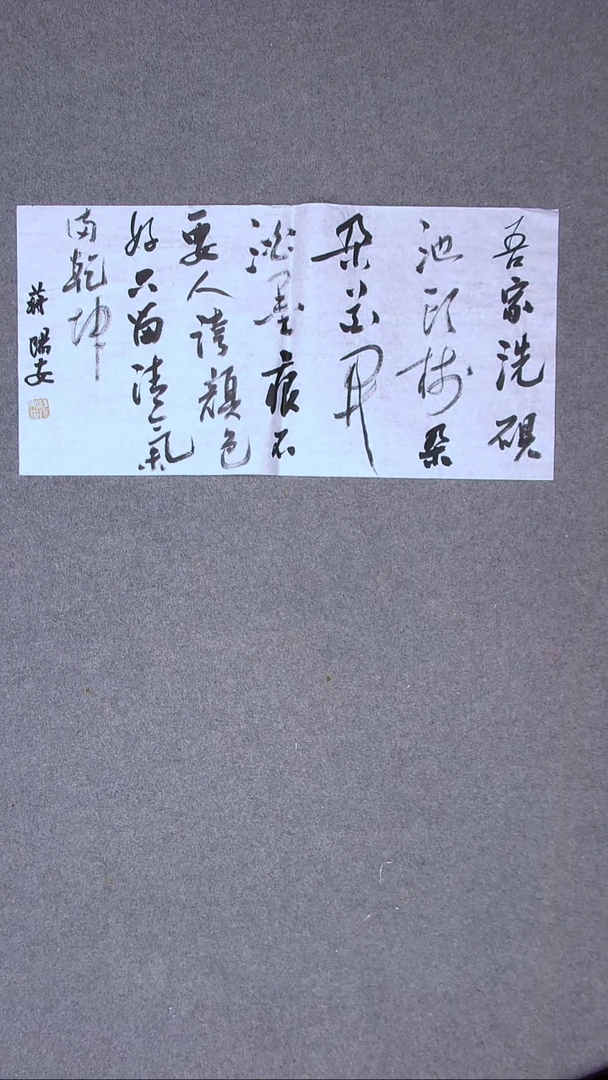 吾家洗硯
池頭樹朵
朵花開
淡墨痕不
要人誇顏色
好只留清氣
滿乾坤
蔣陽安